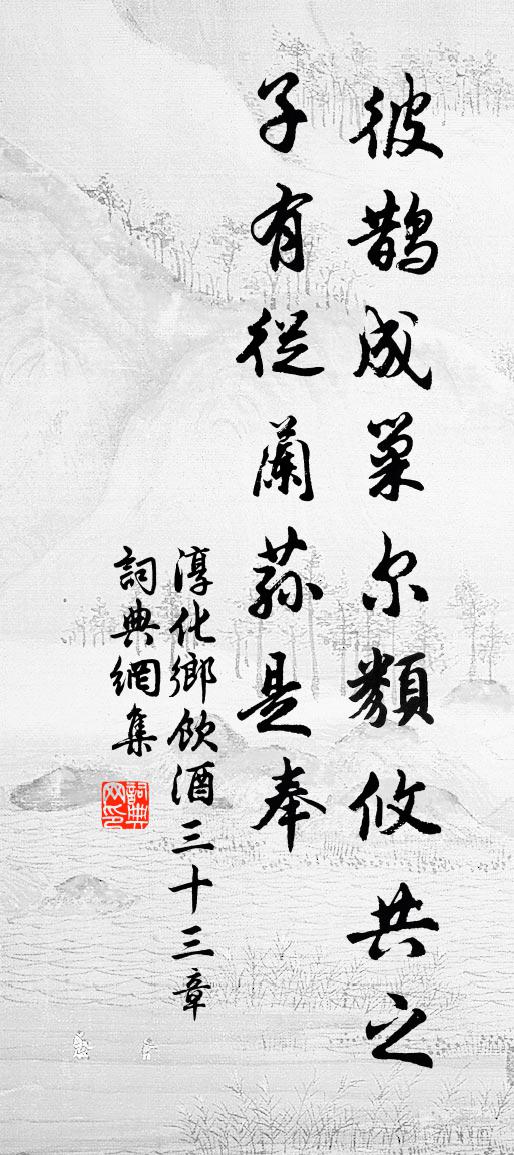 彼鹊成巢尔類攸共之
子有従蘭蓀是奉
淳化鄉飲酒三十三章
詞典網集
詞典網印